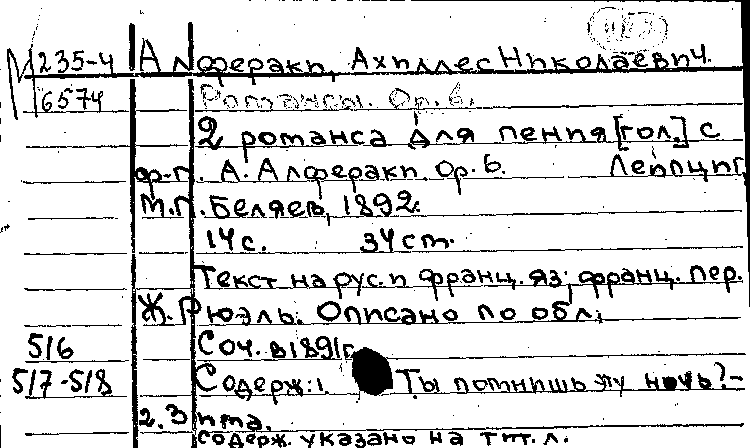 М 235-4 Алфераки, Ахиллес Николаевич.
6574 Романсы. Ор. 6.
2 романса для пения [гол.] с
ф-п. А. Алфераки. Ор. 6. Лейпциг,
М.П. Беляев, 1892.
14 с. 34 cm.
Текст на рус. и франц. яз; франц. пер.
Ж. Рюэль. Описано по обл.
516 Соч. в 1891 г.
517-518 Содерж: 1. Ты помнишь эту ночь? -
2. Зима.
содерж. указано на тит. л.